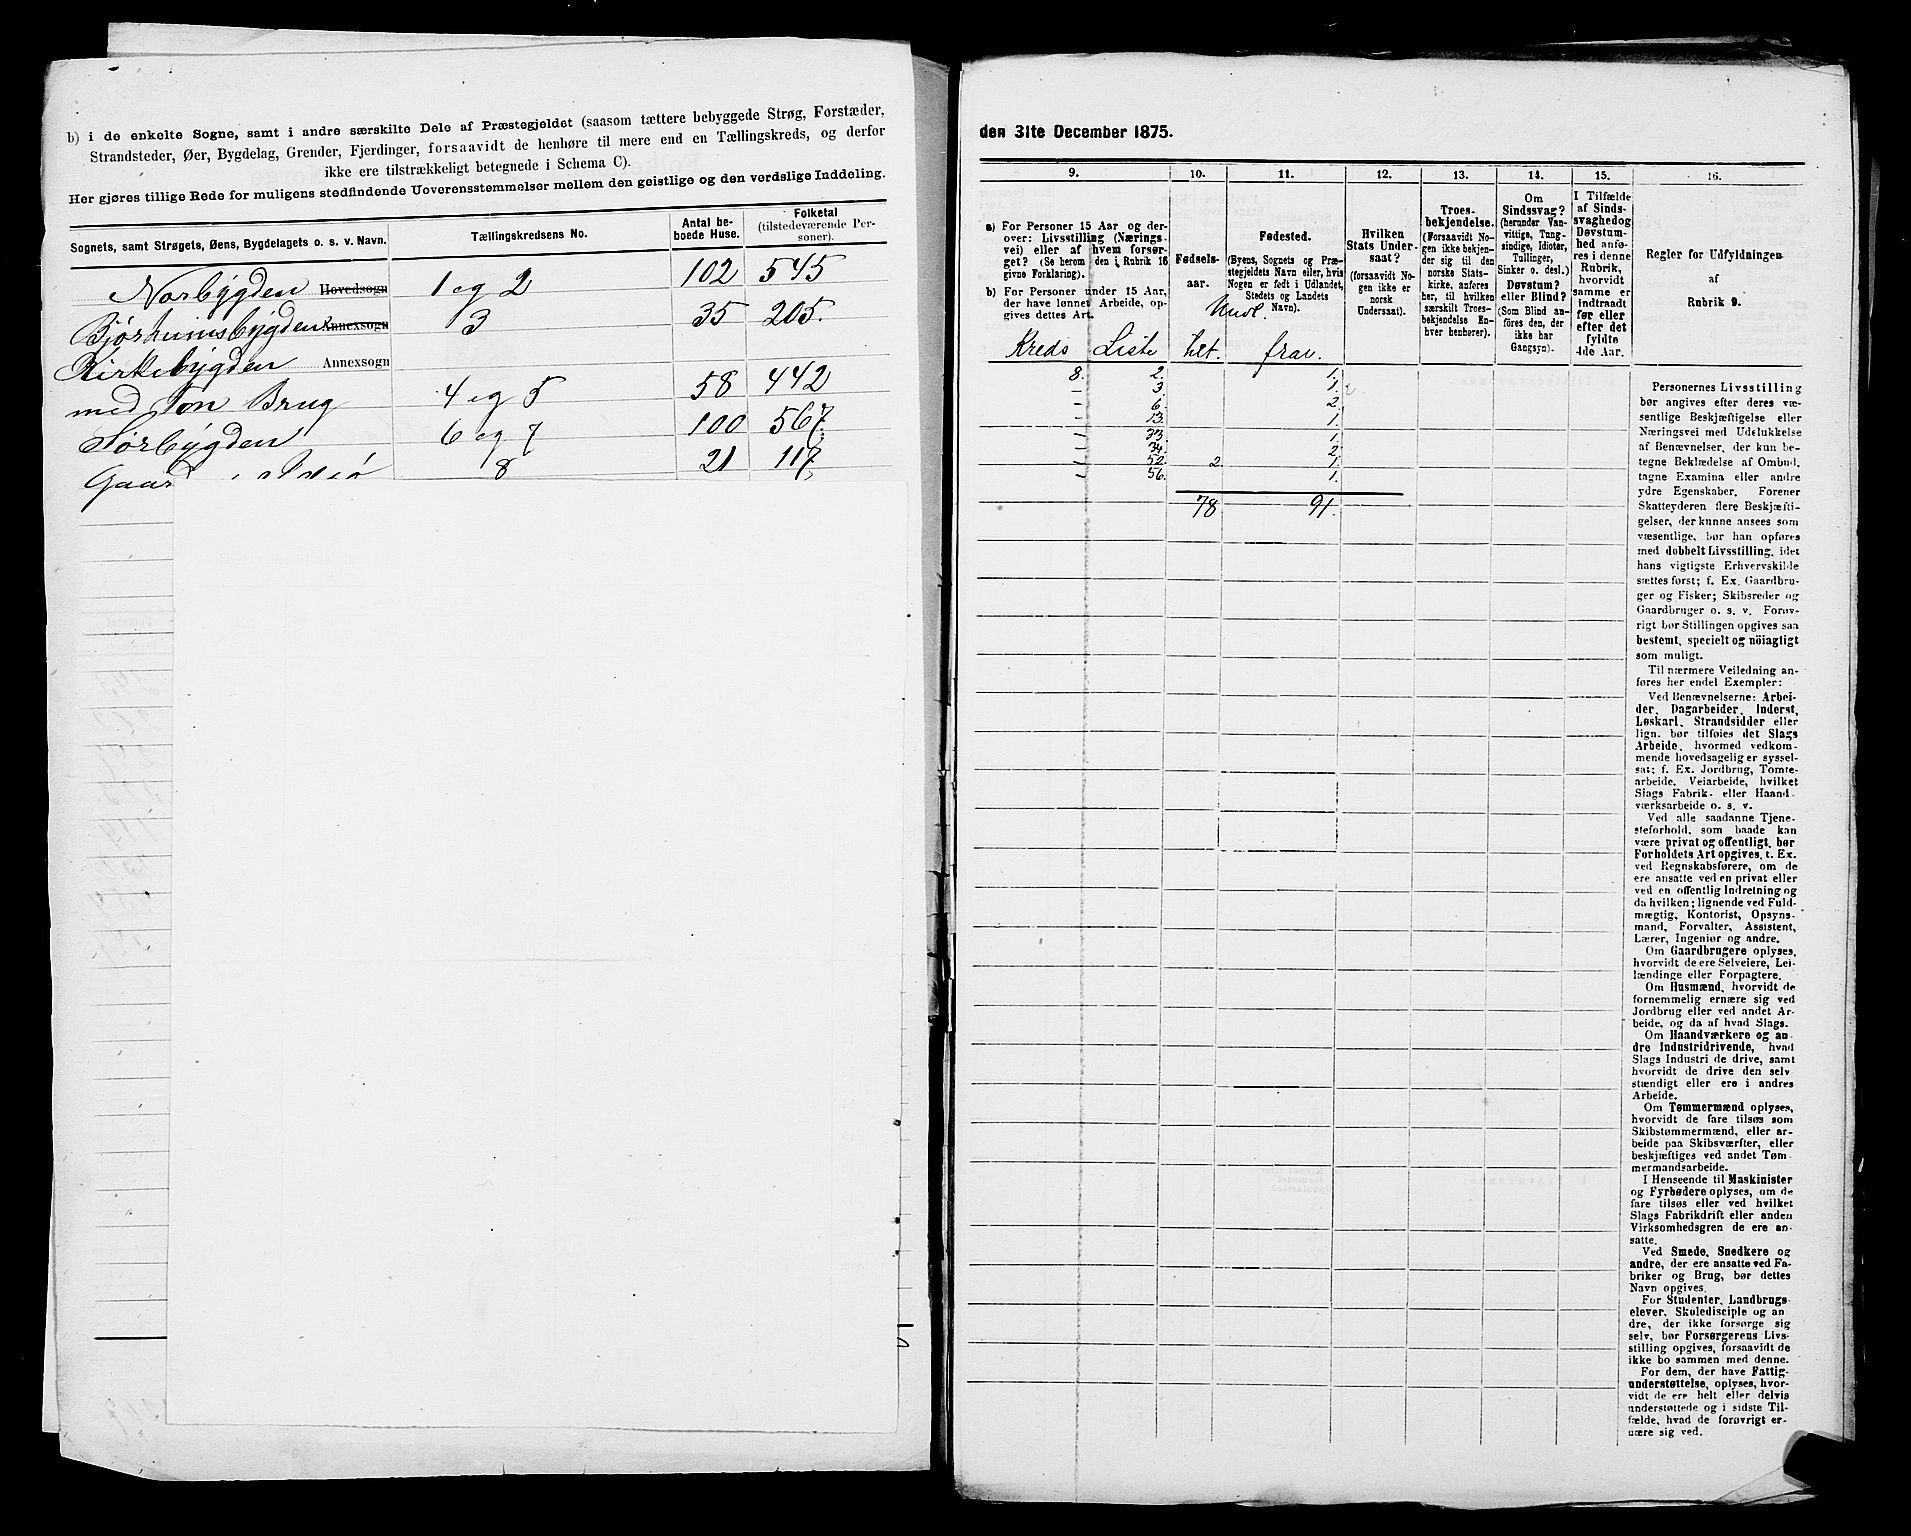 b) i de enkelte Sogne, samt i andre særskilte Dele af Præstegjeldet (saasom tættere bebyggede Strøg, Forstæder,
Strandsteder, Øer, Bygdelag, Grender, Fjerdinger, forsaavidt de henhøre til mere end en Tællingskreds, og derfor
ikke ere tilstrækkeligt betegnede i Schema C).
Her gjøres tillige Rede for muligens stedfindende Uoverensstemmelser mellem den geistlige og den verdslige Inddeling.
Sognets, samt Strøgets, Øens, Bygdelagets o. s. v. Navn. Tællingskredsens No. Antal beboede Huse. Folketal (tilstedeværende Personer).
Norbygden Hovedsogn 1 og 2 102 545
Bjørheimsbygden Annexsogn 3 35 205.
Kirkebygden Annexsogn
med Brug 4 og 5 58 442
Sørbygden 6 og 7 100 567
Gaard i 8 21 117
den 31te December 1875.
9. 10. 11. 12. 13. 14. 15. 16.
a) For Personer 15 Aar og der-
over: Livsstilling (Nærings-
vei) eller af hvem forsør-
get? (Se herom den i Rubrik 16
givne Forklaring).
b) For Personer under 15 Aar,
der have lønnet Arbeide, op-
gives dettes Art.
Fødsels-
aar.
Fødested.
(Byens, Sognets og Præ-
stegjeldets Navn eller, hvis
Nogen er født i Udlandet,
Stedets og Landets
Navn).
Hvilken
Stats Under-
saat?
(forsaavidt No-
gen ikke er
norsk
Undersaat).
Troes-
bekjendelse.
(Forsaavidt No-
gen ikke bekjen-
der sig til den
norske Stats-
kirke, anføres
her, til hvilken
særskilt Troes-
bekjendelse En-
hver henhører).
Om
Sindssvag?
(herunder Van-
vittige, Tung-
sindige, Idioter,
Tullinger,
Sinker o. desl.)
Døvstum?
eller Blind?
(Som Blind an-
føres den, der
ikke har
Gangsyn).
I Tilfælde
af Sinds-
svaghed og
Døvstum-
hed anfø-
res i denne
Rubrik,
hvorvidt
samme er
indtraadt
før eller
efter det
fyldte
4de Aar.
Regler for Udfyldningen
af
Rubrik 9.
Kreds Liste
8. 2. 1.
3. 1.
– 6. 2.
– 13. 1.
– 33. 1.
– 34. 2.
– 52. 2. 1.
– 56. 1.
78 91.
Personernes Livsstilling
bør angives efter deres væ-
sentlige Beskjæftigelse eller
Næringsvei med Udelukkelse
af Benævnelser, der kun be-
tegne Beklædelse af Ombud,
tagne Examina eller andre
ydre Egenskaber. Forener
Skatteyderen flere Beskjæfti-
gelser, der kunne ansees som
væsentlige, bør han opføres
med dobbelt Livsstilling, idet
hans vigtigste Erhvervskilde
sættes først; f. Ex. Gaardbru-
ger og Fisker; Skibsreder og
Gaardbruger o. s. v. Forøv-
rigt bør Stillingen opgives saa
bestemt, specielt og nöiagtigt
som muligt.
Til nærmere Veiledning an-
føres her endel Exempler:
Ved Benævnelserne: Arbei-
der, Dagarbeider, Inderst,
Løskarl, Strandsidder eller
lign. bør tilføies det Slags
Arbeide, hvormed vedkom-
mende hovedsagelig er syssel-
sat; f. Ex. Jordbrug, Tomte-
arbeide, Veiarbeide, hvilket
Slags Fabrik- eller Haand-
værksarbeide o. s. v.
Ved alle saadanne Tjene-
steforhold, som baade kan
være privat og offentligt, bør
Forholdets Art opgives, t. Ex.
ved Regnskabsførere, om de
ere ansatte ved en privat eller
ved en offentlig Indretning og
da hvilken; lignende ved Fuld-
mægtig, Kontorist, Opsyns-
mand, Forvalter, Assistent,
Lærer, Ingeniør og andre.
Om Gaardbrugere oplyses,
hvorvidt de ere Selveiere, Lei-
lændinge eller Forpagtere.
Om Husmænd, hvorvidt de
fornemmelig ernære sig ved
Jordbrug eller ved andet Ar-
beide, og da af hvad Slags.
Om Haandværkere og an-
dre Industridrivende, hvad
Slags Industri de drive, samt
hvorvidt de drive den selv-
stændigt eller ere i andres
Arbeide.
Om Tømmermænd oplyses,
hvorvidt de fare tilsøs som
Skibstømmermænd, eller ar-
beide paa Skibsværfter, eller
beskjæftiges ved andet Tøm-
mermandsarbeide.
I Henseende til Maskinister
og Fyrbødere oplyses, om de
fare tilsøs eller ved hvilket
Slags Fabrikdrift eller anden
Virksomhedsgren de ere an-
satte.
Ved Smede, Snedkere og
andre, der ere ansatte ved Fa-
briker og Brug, bør dettes
Navn opgives.
For Studenter, Landbrugs-
elever, Skoledisciple og an-
dre, der ikke forsørge sig
selv, bør Forsørgerens Livs-
stilling opgives, forsaavidt de
ikke bo sammen med denne.
For dem, der have Fattig-
understøttelse, oplyses, hvor-
vidt de ere helt eller delvis
understøttede og i sidste Til-
fælde, hvad de forøvrigt er-
nære sig ved.